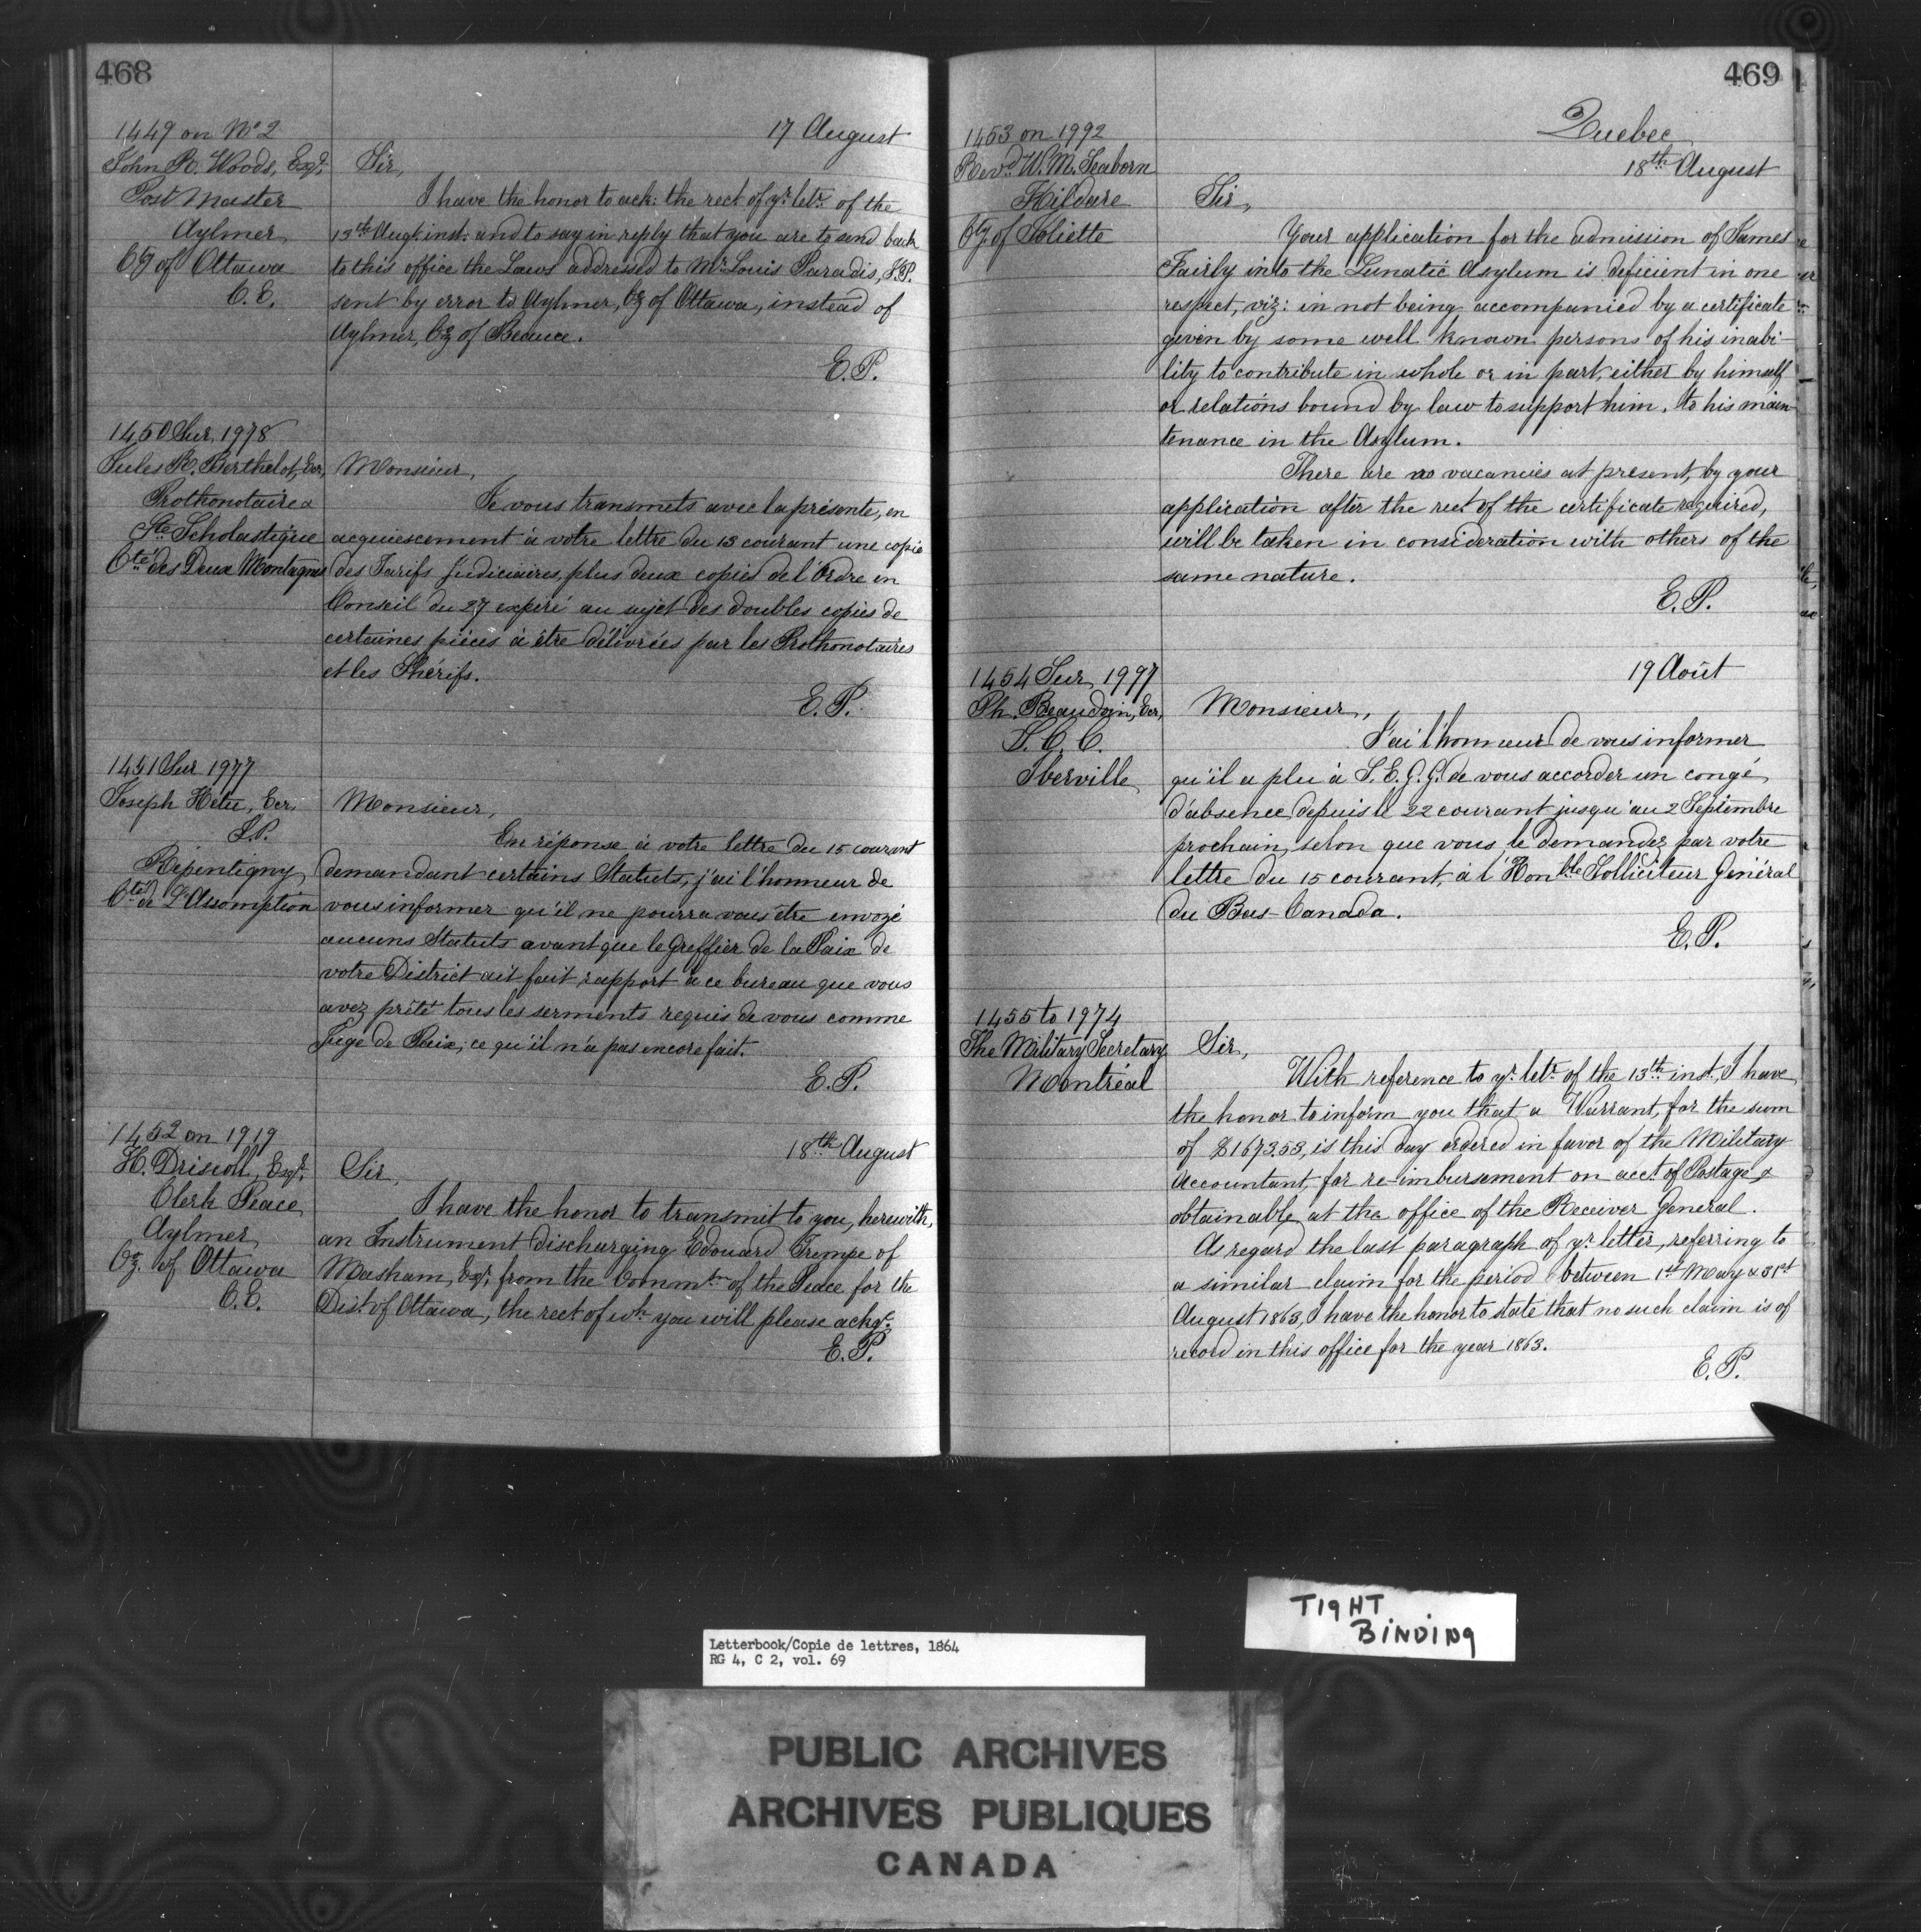 468
1449 on No 2
17 August
John R. Woods, Esqr.
Post Master
Aylmer
Cty of Ottawa
C. E.
Sir,
I have the honor to ack: the rect of yr. letr. of the
13th Augt. inst: and to say in reply that you are to send back
to this office the Laws addressed to Mr. Louis Paradis, J.P.
sent by error to Aylmer, Cy of Ottawa, instead of
Aylmer, Cy of Beauce.
E. P.
1450 Sur 1978
Jules R. Berthelot, Ecr,
Prothonotaire &
Ste Scholastique
Cté des Deux Montagnes
Monsieur,
Je vous transmets avec la présente, en
acquiescement à votre lettre du 13 courant une copie
des Tarifs Judiciaires, plus deux copies de l'Ordre en
Conseil du 27 expiré au sujet des doubles copies de
certaines pièces à être délivrées par les Prothonotaires
et les Shérifs.
E. P.
1451 Sur 1977
Joseph Hétu, Ecr,
J.P.
Répentigny
Cté de L'Assomption
Monsieur,
En réponse à votre lettre du 15 courant
demandant certains Statuts, j'ai l'honneur de
vous informer qu'il ne pourra vous être envoyé
aucuns Statuts avant que le Greffier de la Paix de
votre District ait fait rapport à ce bureau que vous
avez prêté tous les serments requis de vous comme
Juge de Paix, ce qu'il n'a pas encore fait.
E. P.
1452 on 1919
18th August
H. Driscoll, Esqr.
Clerk Peace
Aylmer
Cy. of Ottawa
C. E.
Sir,
I have the honor to transmit to you, herewith,
an Instrument discharging Edouard Trempe of
Masham, Esqr, from the Commtn of the Peace for the
Dist of Ottawa, the rect of wh. you will please ackge.
E. P.
469
Quebec
1453 on 1992
18th August
Revd. W. M. Seaborn
Kildare
Cty of Joliette
Sir,
Your application for the admission of James
Fairly into the Lunatic Asylum is deficient in one
respect, viz: in not being accompanied by a certificate
given by some well known persons of his inabi-
lity to contribute in whole or in part, either by himself
or relations bound by law to support him, to his main
tenance in the Asylum.
There are no vacancies at present, by your
application after the rect of the certificate required,
will be taken in consideration with others of the
same nature.
E. P.
1454 Sur 1997
19 Août
Ph. Beaudoin, Ecr,
S. C. C.
Iberville
Monsieur,
J'ai l'honneur de vous informer
qu'il a plu à S. E. G. G. de vous accorder un congé
d'absence depuis le 22 courant jusqu'au 2 Septembre
prochain, selon que vous le demandez par votre
lettre du 15 courant, à l'Honble Solliciteur Général
du Bas-Canada.
E. P.
1455 to 1974
The Military Secretary
Montréal
Sir,
With reference to yr. letr. of the 13th inst, I have
the honor to inform you that a Warrant, for the sum
of $1673.53, is this day ordered in favor of the Military
Accountant, for re-imbursement on acct. of Postage &
obtainable at the office of the Receiver General.
As regard the last paragraph of yr letter, referring to
a similar claim for the period between 1st May & 31st
August 1863, I have the honor to state that no such claim is of
record in this office for the year 1863.
E. P.
TIGHT
BINDING
Letterbook/Copie de lettres, 1864
RG 4, C 2, vol. 69
PUBLIC ARCHIVES
ARCHIVES PUBLIQUES
CANADA